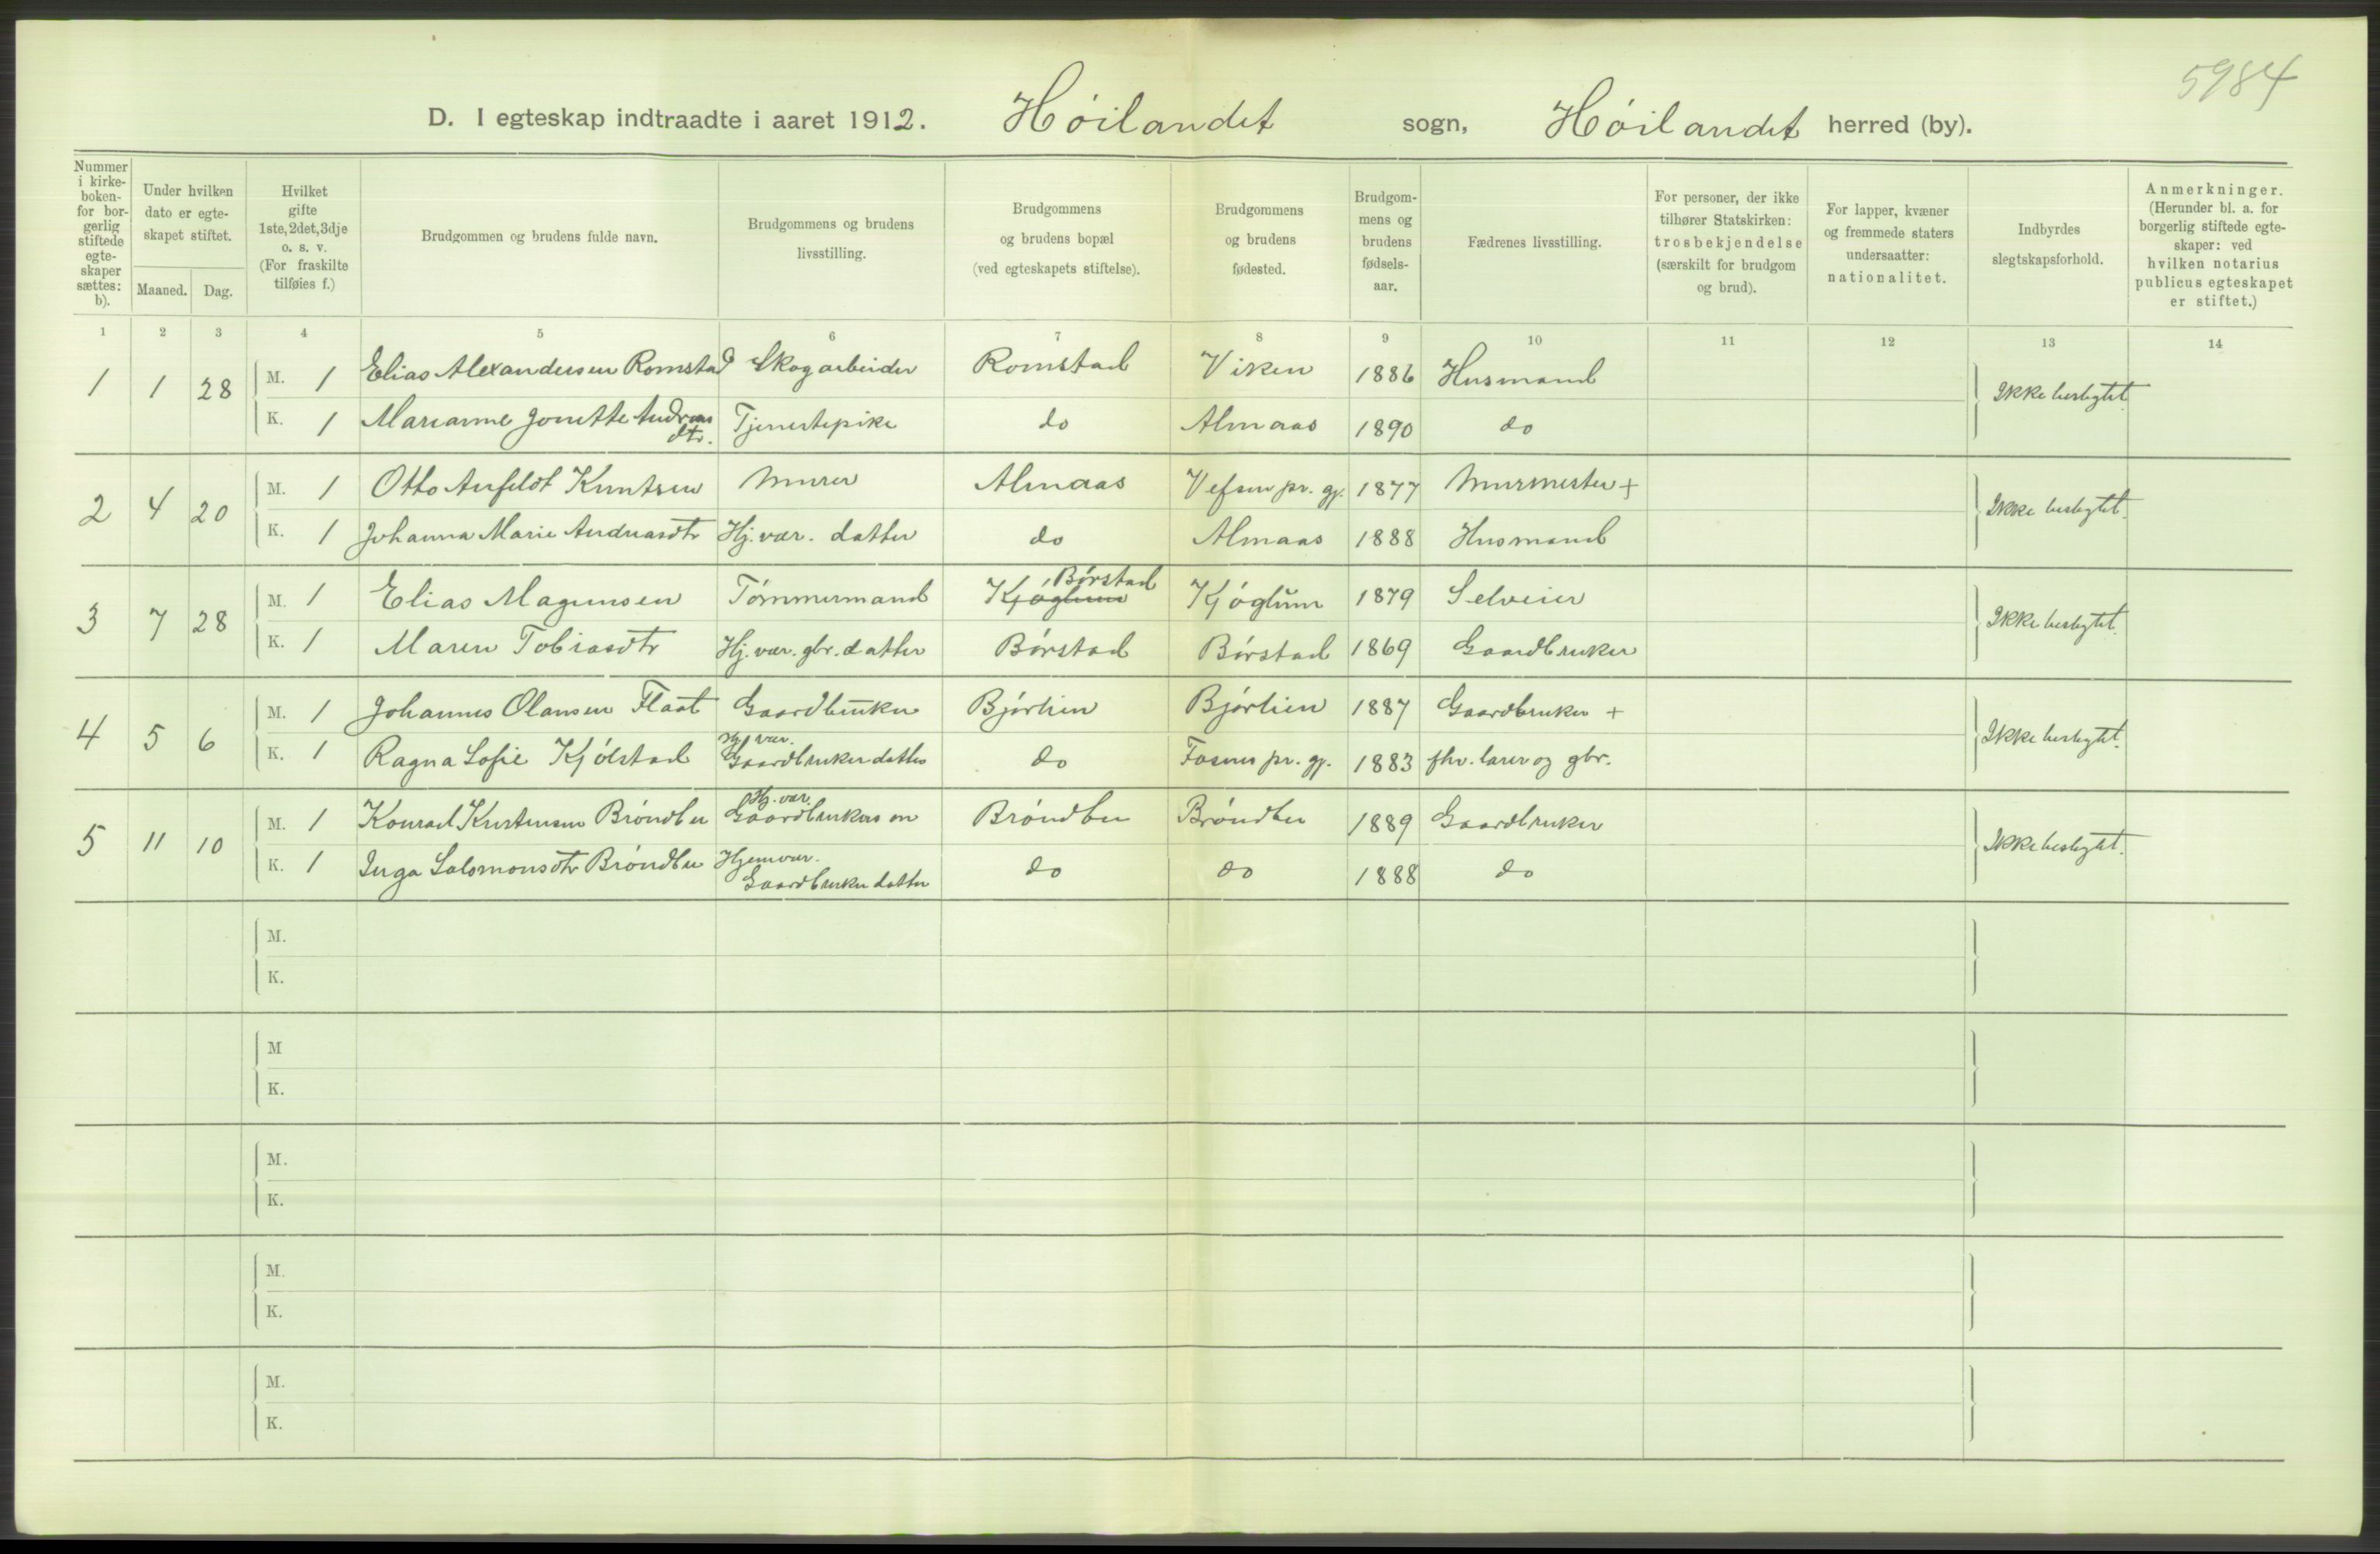 5984
D. I egteskap indtraadte i aaret 1912. Høilandet sogn, Høilandet herred (by).
Nummer i kirke-boken- for bor-gerlig stiftede egte-skaper sættes: b).
Under hvilken dato er egte-skapet stiftet.
Maaned. Dag.
Hvilket gifte 1ste, 2det, 3dje o. s. v. (For fraskilte tilføies f.)
Brudgommen og brudens fulde navn.
Brudgommens og brudens livsstilling.
Brudgommens og brudens bopæl (ved egteskapets stiftelse).
Brudgommens og brudens fødested.
Brudgom-mens og brudens fødsels-aar.
Fædrenes livsstilling.
For personer, der ikke tilhører Statskirken: trosbekjendelse (særskilt for brudgom og brud).
For lapper, kvæner og fremmede staters undersaatter: nationalitet.
Indbyrdes slegtskapsforhold.
Anmerkninger. (Herunder bl. a. for borgerlig stiftede egte-skaper: ved hvilken notarius publicus egteskapet er stiftet.)
1 2 3 4 5 6 7 8 9 10 11 12 13 14
1 1 28 M. 1 Elias Alexandersen Romstad Skogarbeider Romstad Viken 1886 Husmand Ikke beslegtet
K. 1 Marianne Jonette Andreasdtr. Tjenestepike do Almaas 1890 do
2 4 20 M. 1 Otto Anfeldt Knutsen Murer Almaas Vefsen pr. gj. 1877 Murmester + Ikke beslegtet.
K. 1 Johanna Marie Andreasdtr Hj. vær. datter do Almaas 1888 Husmand
3 7 28 M. 1 Elias Magnusen Tømmermand Kjøglum Børstad Kjøglum 1879 Selveier Ikke beslegtet.
K. 1 Maren Tobiasdtr Hj. vær. gbr. datter Børstad Børstad 1869 Gaardbruker
4 5 6 M. 1 Johannes Olausen Flaat Gaardbruker Bjørlien Bjørlien 1887 Gaardbruker + Ikke beslegtet.
K. 1 Ragna Sofie Kjølstad Hj. vær. Gaardbrukerdatter do Fosnes pr. gj. 1883 fhv. lærer og gbr.
5 11 10 M. 1 Konrad Kristensen Brøndbu Hj. vær. Gaardbrukersøn Brøndbu Brøndbu 1889 Gaardbruker Ikke beslegtet.
K. 1 Inga Salomonsdtr Brøndbu Hjemvær. Gaardbruker datter do do 1888 do
M.
K.
M
K.
M.
K.
M.
K.
M.
K.